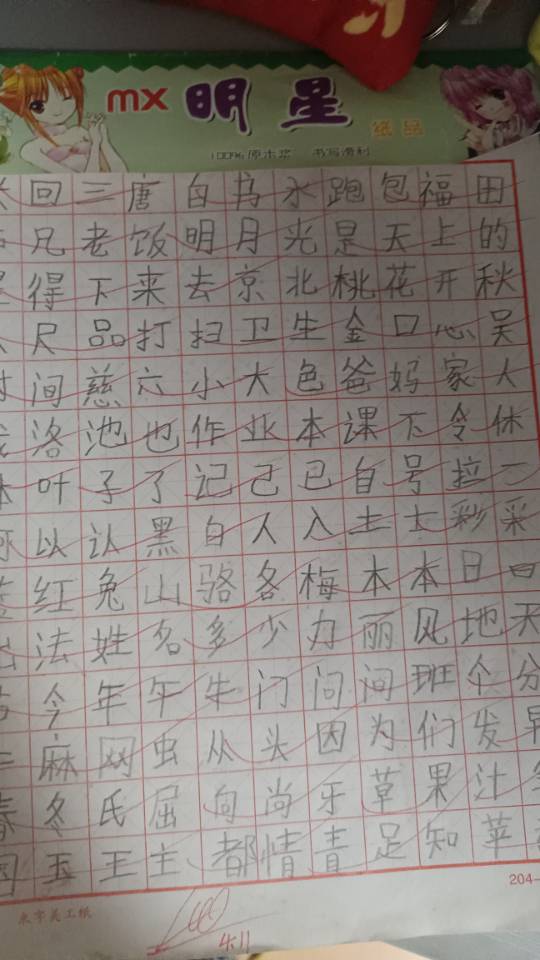 mx 明星 纸品
100%原木浆 书写滑利
回三唐白书水跑包福田
凡老饭明月光是天上的
得下来去京北桃花开秋
尺品打扫卫生金口心吴
时间慈六小大色爸妈家人
洛池也作业本课下令休
叶子了记己已自号拉一
以认黑白人入土士彩采
红兔山骆各梅木本日田
法姓名多少力丽风地天
今年午牛门问间班个分
麻网虫从头因为们发早
春冬氏屈向尚乐草果汁
园玉王主都情青足知苹
204-
东宇美工纸
100